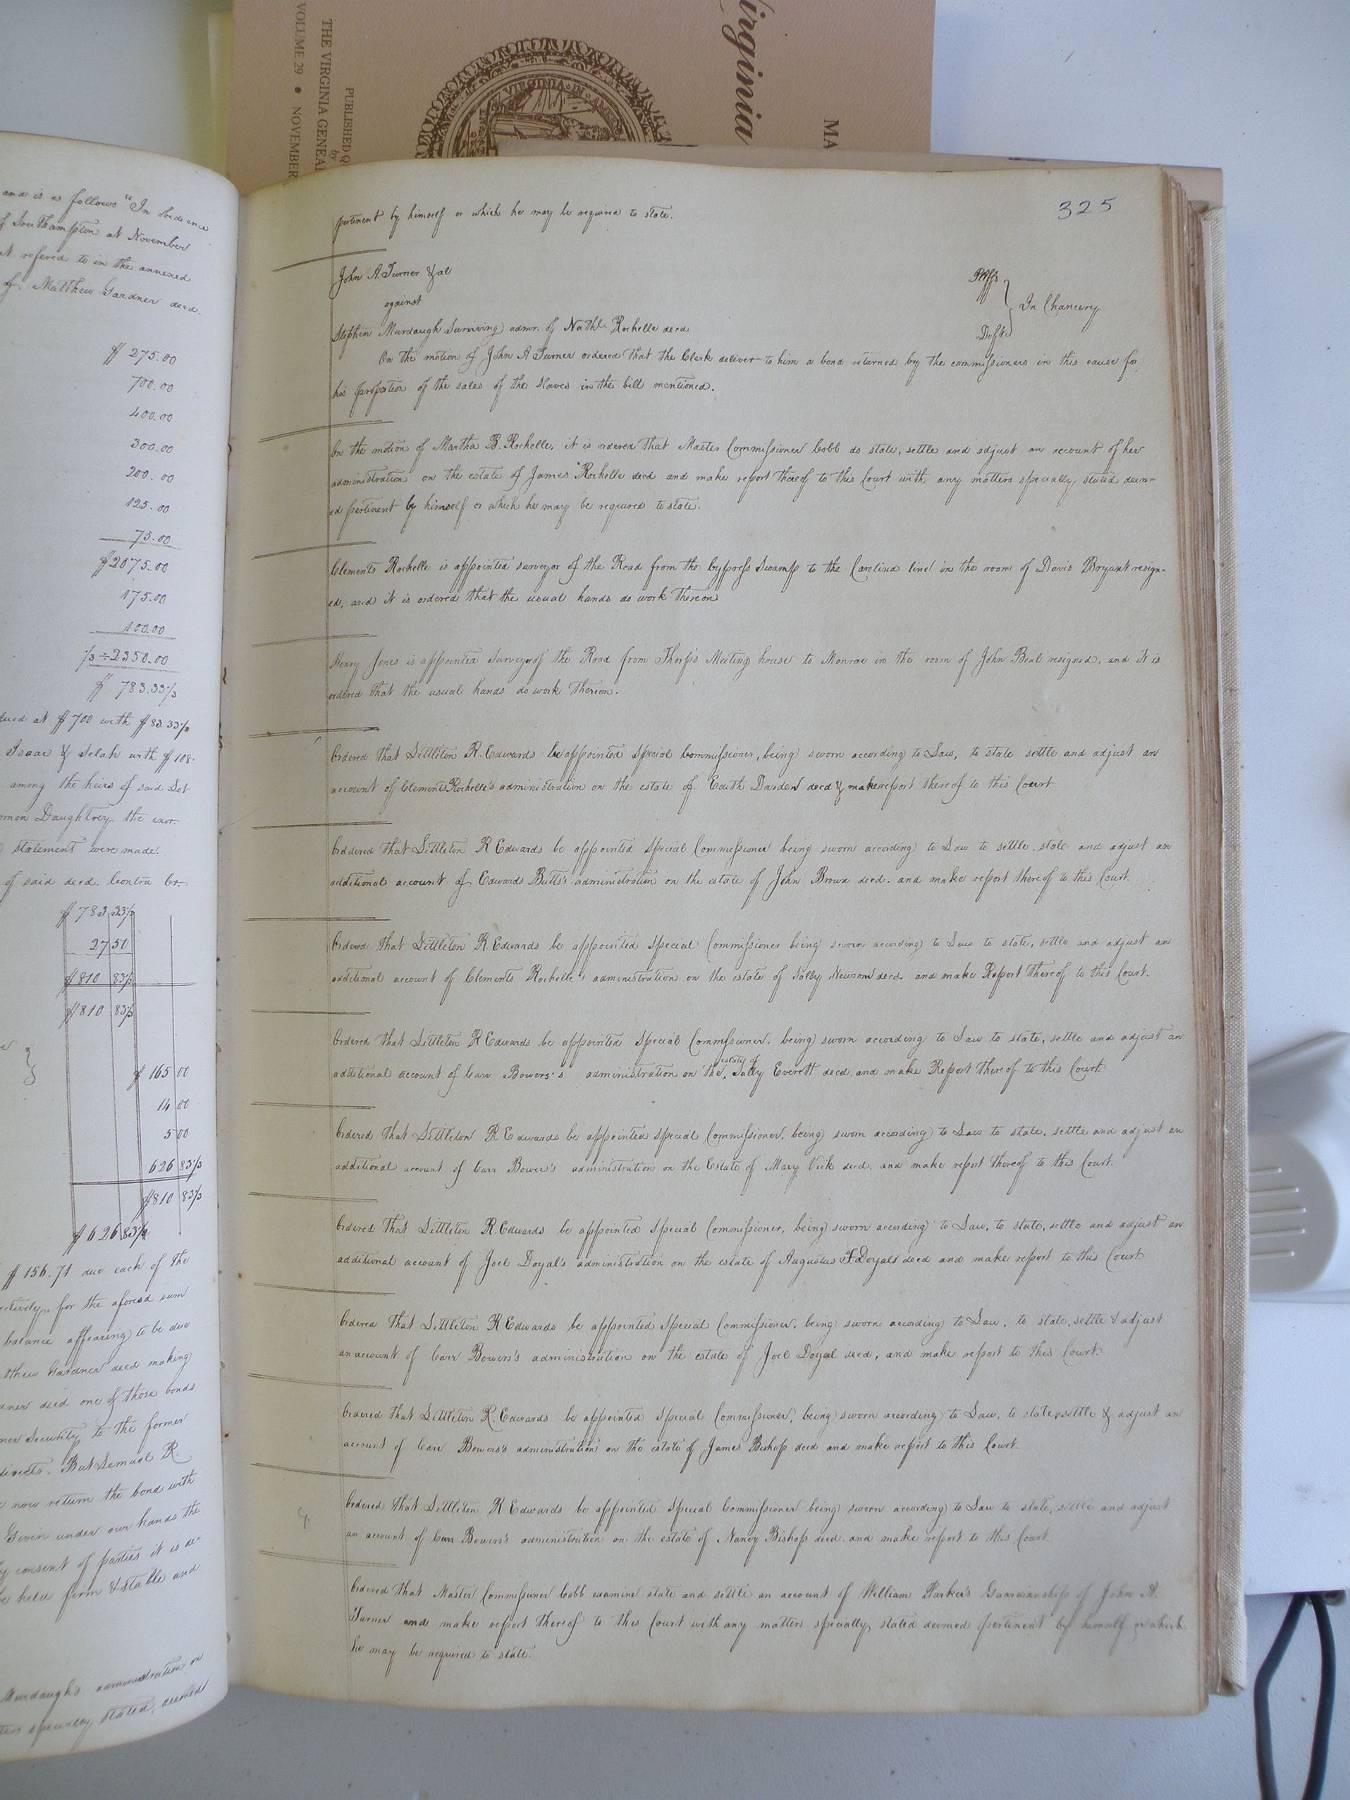 Virginia
MA
PUBLISHED Q
by
THE VIRGINIA GENEA
VOLUME 29 • NOVEMBER
VIRGINIA
and is as follows "In
of Southampton at November
refered to in the annexed
of Matthew Gardner decd.
$ 275.00
700.00
400.00
300.00
200.00
125.00
75.00
$2075.00
175.00
100.00
/3 ÷ 2350.00
$ 783.33⅓
at $700 with $83.33⅓
Isaac & Selah with $108.
among the heirs of said
Daughtrey the exor.
statement were made.
of said decd. Contra Cr.
$ 783 33⅓
27 50
$810 83⅓
$810 83⅓
$ 165 00
14 00
5 00
626 83⅓
$810 83⅓
$626 83⅓
$156.71 due each of the
for the aforesd sum
balance appearing to be due
Gardner decd making
decd one of those bonds
Security to the former
But Samuel R
now return the bond with
Given under our hands the
consent of parties it is
held firm & stable and
Murdaugh's administration on
specially stated, deemed
325
pertinent by himself or which he may be required to state.
John A Turner & al Pltffs
against } In Chancery
Stephen Murdaugh surviving admr. of Nathl Rochelle decd Defts
On the motion of John A Turner ordered that the Clerk deliver to him a bond returned by the commissioners in this cause for
his proportion of the sales of the slaves in the bill mentioned.
On the motion of Martha B. Rochelle, it is ordered that Master Commissioner Cobb do state, settle and adjust an account of her
administration on the estate of James Rochelle decd and make report thereof to this Court with any matters specially stated deem-
ed pertinent by himself or which he may be required to state.
Clements Rochelle is appointed surveyor of the Road from the Cypress Swamp to the Carolina line in the room of Davis Bryant resign-
ed, and it is ordered that the usual hands do work thereon
Henry Jones is appointed surveyor of the Road from Thorp's Meeting house to Monroe in the room of John Beal resigned, and it is
ordered that the usual hands do work thereon.
Ordered that Littleton R. Edwards be appointed special Commissioner, being sworn according to Law, to state settle and adjust an
account of Clements Rochelle's administration on the estate of Edith Darden decd & make report thereof to this Court
Ordered that Littleton R Edwards be appointed special Commissioner being sworn according to Law to settle, state and adjust an
additional account of Edwards Butts's administration on the estate of John Brown decd. and make report thereof to this Court.
Ordered that Littleton R Edwards be appointed special Commissioner being sworn according to Law to state, settle and adjust an
additional account of Clements Rochelle's administration on the estate of Sally Newsom decd. and make Report thereof to this Court.
Ordered that Littleton R Edwards be appointed special Commissioner, being sworn according to Law to state, settle and adjust an
additional account of Carr Bowers's administration on the estate of Sally Everett decd. and make Report thereof to this Court
Ordered that Littleton R Edwards be appointed special Commissioner, being sworn according to Law to state, settle and adjust an
additional account of Carr Bowers's administration on the Estate of Mary Vick decd, and make report thereof to this Court.
Ordered that Littleton R. Edwards be appointed special Commissioner, being sworn according to Law, to state, settle and adjust an
additional account of Joel Doyal's administration on the estate of Augustus F. Doyals decd and make report to this Court
Ordered that Littleton R Edwards be appointed special Commissioner, being sworn according to Law, to state, settle & adjust
an account of Carr Bowers's administration on the estate of Joel Doyal decd, and make report to this Court.
Ordered that Littleton R. Edwards be appointed special Commissioner, being sworn according to Law, to state, settle & adjust an
account of Carr Bowers's administration on the estate of James Bishop decd and make report to this Court.
Ordered that Littleton R Edwards be appointed special Commissioner being sworn according to Law to state, settle and adjust
an account of Carr Bowers's administration on the estate of Nancy Bishop decd. and make report to this Court
Ordered that Master Commissioner Cobb examine state and settle an account of William Parker's Guardianship of John A.
Turner and make report thereof to this Court with any matters specially stated deemed pertinent by himself or which
he may be required to state.